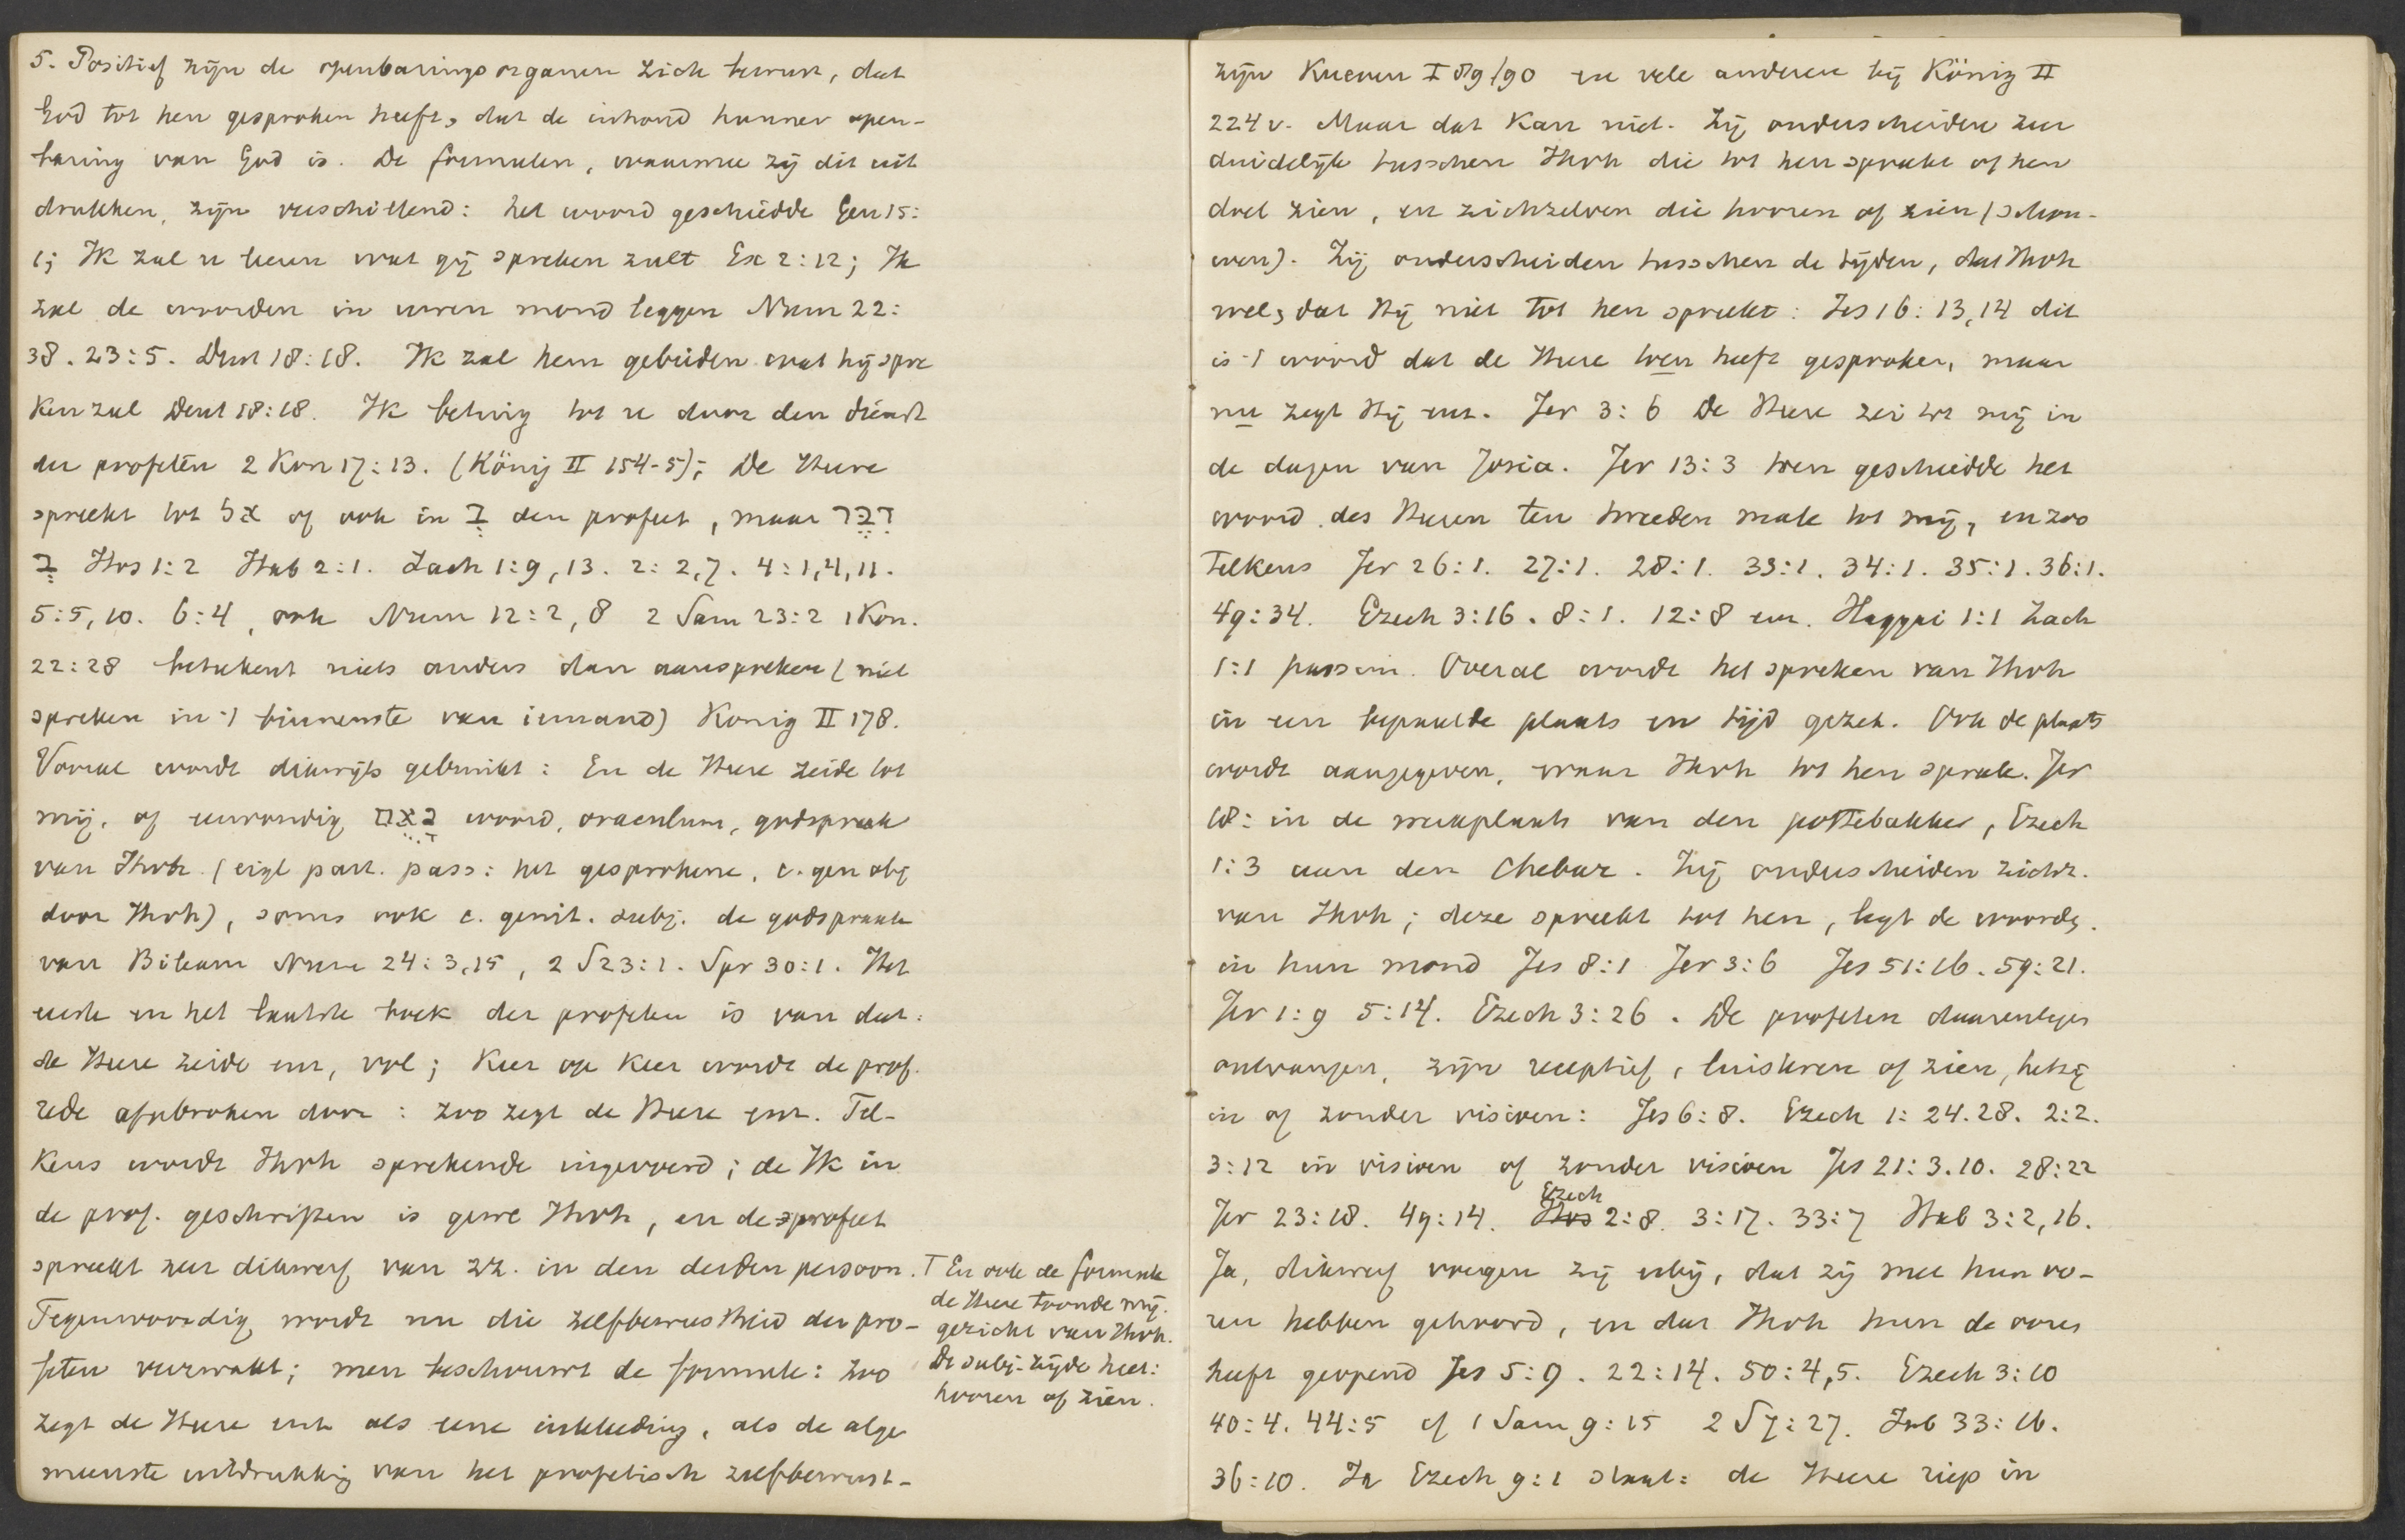 5. Positief zijn de openbaringsorganen zich bewust, dat
God tot hen gesproken heeft, dat de inhoud hunner open-
baring van God is. De formulen, waarmee zij dit uit
drukken, zijn verschillend: het woord geschiedde Gen 15:
1; Ik zal u leeren wat gij spreken zult Ex 2:12; Ik
zal de woorden in uwen mond leggen Num 22:
38. 23:5. Deut 18:18. Ik zal hem gebieden wat hij spre
ken zal Deut 18:18. Ik betuig tot u door den dienst
der profeten 2 Kon 17:13. (König II 154-5); De Heere
spreekt tot אֶל of ook in בְּ den profeet, maar דִּבֶּר
בְּ Hos 1:2 Hab 2:1. Zach 1:9, 13. 2:2,7. 4:1,4,11.
5:5, 10. 6:4, ook Num 12:2, 8 2 Sam 23:2 1 Kon.
22:28 beteekent niets anders dan aanspreken (niet
spreken in 't binnenste van iemand) Konig II 178.
Vooral wordt dikwijls gebruikt: En de Heere zeide tot
mij, of eenvoudig נְאֻם woord, oraculum, godspraak
van Ihvh. (eigl part. pass: het gesprokene, c. gen obj
door Ihvh), soms ook c. genit. subj. de godspraak
van Bileam Num 24:3,15, 2 S 23:1. Spr 30:1. Het
eerste en het laatste boek der profeten is van dat:
de Heere zeide enz, vol; Keer op keer wordt de prof.
rede afgebroken door: zoo zegt de Heere enz. Tel-
kens wordt Ihvh sprekende ingevoerd; de Ik in
de prof. geschriften is gewl Ihvh, en de profeet
spreekt zeer dikwerf van zz. in den derden persoon.
Tegenwoordig wordt nu die zelfbewustheid der pro-
feten verzwakt; men beschouwt de formule: zoo
zegt de Heere enz als eene inkleeding, als de alge
meenste uitdrukking van het profetisch zelfbewust-
⊤ En ook de formule
de Heere toonde mij.
gezicht van Ihvh.
De subj-zijde heet:
hooren of zien.
zijn Kuenen I 89/90 en vele anderen bij König II
224 v. Maar dat kan niet. Zij onderscheiden zeer
duidelijk tusschen Ihvh die tot hen spreekt of hen
doet zien, en zichzelven die hooren of zien (schou-
wen). Zij onderscheiden tusschen de tijden, dat Ihvh
wel, dat Hij niet tot hen spreekt: Jes 16:13,14 dit
is 't woord dat de Heere toen heeft gesproken, maar
nu zegt Hij enz. Jer 3:6 De Heere zei tot mij in
de dagen van Josia. Jer 13:3 toen geschiedde het
woord des Heeren ten tweeden male tot mij, en zoo
telkens Jer 26:1. 27:1. 28:1. 33:1. 34:1. 35:1. 36:1.
49:34. Ezech 3:16. 8:1. 12:8 enz. Haggai 1:1 Zach
1:1 passim. Overal wordt het spreken van Ihvh
in een bepaalde plaats en tijd gezet. Ook de plaats
wordt aangegeven, waar Ihvh tot hen sprak. Jer
18: in de werkplaats van den pottebakker, Ezech
1:3 aan den Chebar. Zij onderscheiden zichz.
van Ihvh; deze spreekt tot hen, legt de woorden
in hun mond Jes 8:1 Jer 3:6 Jes 51:16. 59:21.
Jer 1:9 5:14. Ezech 3:26. De profeten daarentegen
ontvangen, zijn receptief, luisteren of zien, hetzij
in of zonder visioen: Jes 6:8. Ezech 1:24.28. 2:2.
3:12 in visioen of zonder visioen Jes 21:3.10. 28:22
Jer 23:18. 49:14. Hos Ezech 2:8. 3:17. 33:7 Hab 3:2, 16.
Ja, dikwerf voegen zij erbij, dat zij met hun oo-
ren hebben gehoord, en dat Ihvh hun de ooren
heeft geopend Jes 5:9. 22:14. 50:4,5. Ezech 3:10
40:4. 44:5 cf 1 Sam 9:15 2 S 7:27. Job 33:16.
36:10. In Ezech 9:1 staat: de Heere riep in